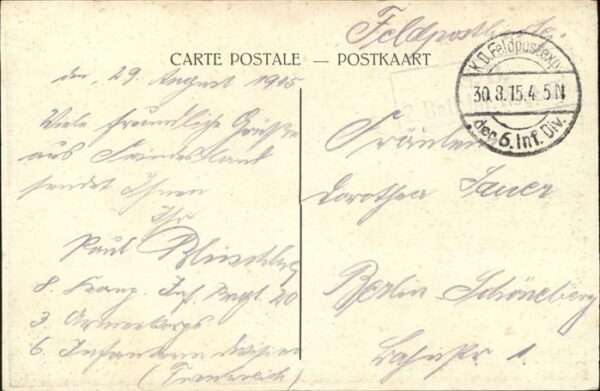 Feldpostkarte.
CARTE POSTALE — POSTKAART
K.D. Feldpostexp.
30.8.15. 4-5 N
der 6. Inf. Div.
den, 29. August 1915
Viele freundliche Grüße
aus Feindesland
sendet Ihnen
Ihr
Paul
8. Komp. Inf. Regt. 20
3. Armeekorps
6. Infanterie Division
(Frankreich)
Fräulein
Dorothea Sauer
Berlin Schöneberg
Bahnstr 1.